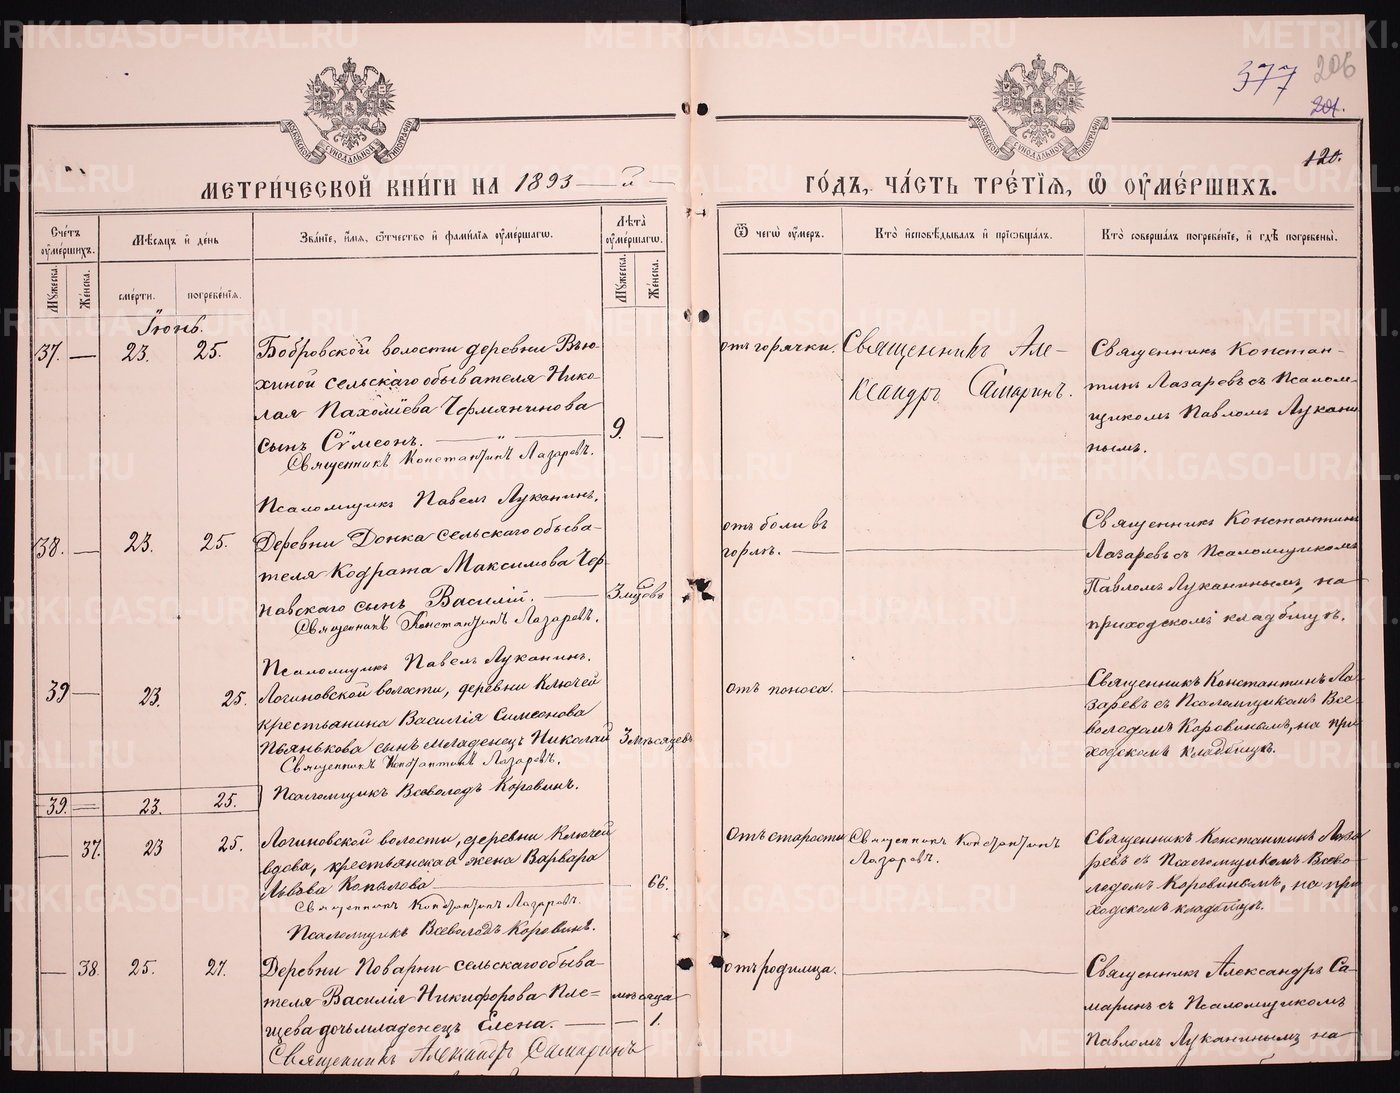 377
206
201.
120.
МОСКОВСКОЙ СѴНОДАЛЬНОЙ ТИПОГРАФІИ
МОСКОВСКОЙ СѴНОДАЛЬНОЙ ТИПОГРАФІИ
МЕТРИ́ЧЕСКОЙ КНИ́ГИ НА 1893 — й —
ГО́ДЪ, ЧА́СТЬ ТРЕ́ТІѦ, Ѡ ОУМЕ́РШИХЪ.
Сче́тъ оуме́ршихъ.
Мꙋжеска.
Же́нска.
Мѣ́сяцъ и де́нь
сме́рти.
погребе́нія.
Зва́ніе, и́мя, ѻ҆́тчество и фами́лія оуме́ршагѡ.
Лѣ́та оуме́ршагѡ.
Мꙋжеска.
Же́нска.
Ѿ чегѡ̀ оу́меръ.
Кто̀ и҆сповѣ́дывалъ и прїѡбща́лъ.
Кто̀ соверша́лъ погребе́ніе, и гдѣ̀ погребены̀.
Іюнь.
37. — 23. 25.
Бобровской волости деревни Вью-
хиной сельскаго обывателя Нико-
лая Пахоміева Чермянинова
сынъ Сѵмеонъ. — 9. —
Священникъ Константинъ Лазаревъ.
Псаломщикъ Павелъ Луканинъ.
отъ горячки.
Священникъ Але-
ксандръ Самаринъ.
Священникъ Констан-
тинъ Лазаревъ съ Псалом-
щикомъ Павломъ Лукани
нымъ.
38. — 23. 25.
Деревни Донка сельскаго обыва-
теля Кодрата Максимова Чер
навскаго сынъ Василій. — 3 мцовъ
Священникъ Константинъ Лазаревъ.
Псаломщикъ Павелъ Луканинъ.
отъ боли въ
горлѣ. —
Священникъ Константинъ
Лазаревъ съ Псаломщикомъ
Павломъ Луканинымъ, на
приходскомъ кладбищѣ.
39 — 23. 25.
Логиновской волости, деревни Ключей
крестьянина Василія Симеонова
Пьянькова сынъ младенецъ Николай 3 мѣсяцевъ
Священникъ Константинъ Лазаревъ.
Псаломщикъ Всеволодъ Коровинъ.
отъ поноса.
Священникъ Константинъ Ла-
заревъ съ Псаломщикомъ Все-
володомъ Коровинымъ, на при
ходскомъ кладбищѣ.
39. = 23. 25.
— 37. 23 25.
Логиновской волости, деревни Ключей
вдова, крестьянская жена Варвара
Львова Копылова — 66.
Священникъ Константинъ Лазаревъ.
Псаломщикъ Всеволодъ Коровинъ.
Отъ старости
Священникъ Константинъ
Лазаревъ.
Священникъ Константинъ Лаза
ревъ съ Псаломщикомъ Всево-
лодомъ Коровинымъ, на при
ходскомъ кладбищѣ.
— 38. 25. 27.
Деревни Поварни сельскаго обыва-
теля Василія Никифорова Пле- мѣсяца
щева дочь младенецъ Елена. — — 1.
Священникъ Александръ Самаринъ
отъ родимца.
Священникъ Александръ Са-
маринъ съ Псаломщикомъ
Павломъ Луканинымъ, на
METRIKI.GASO-URAL.RU